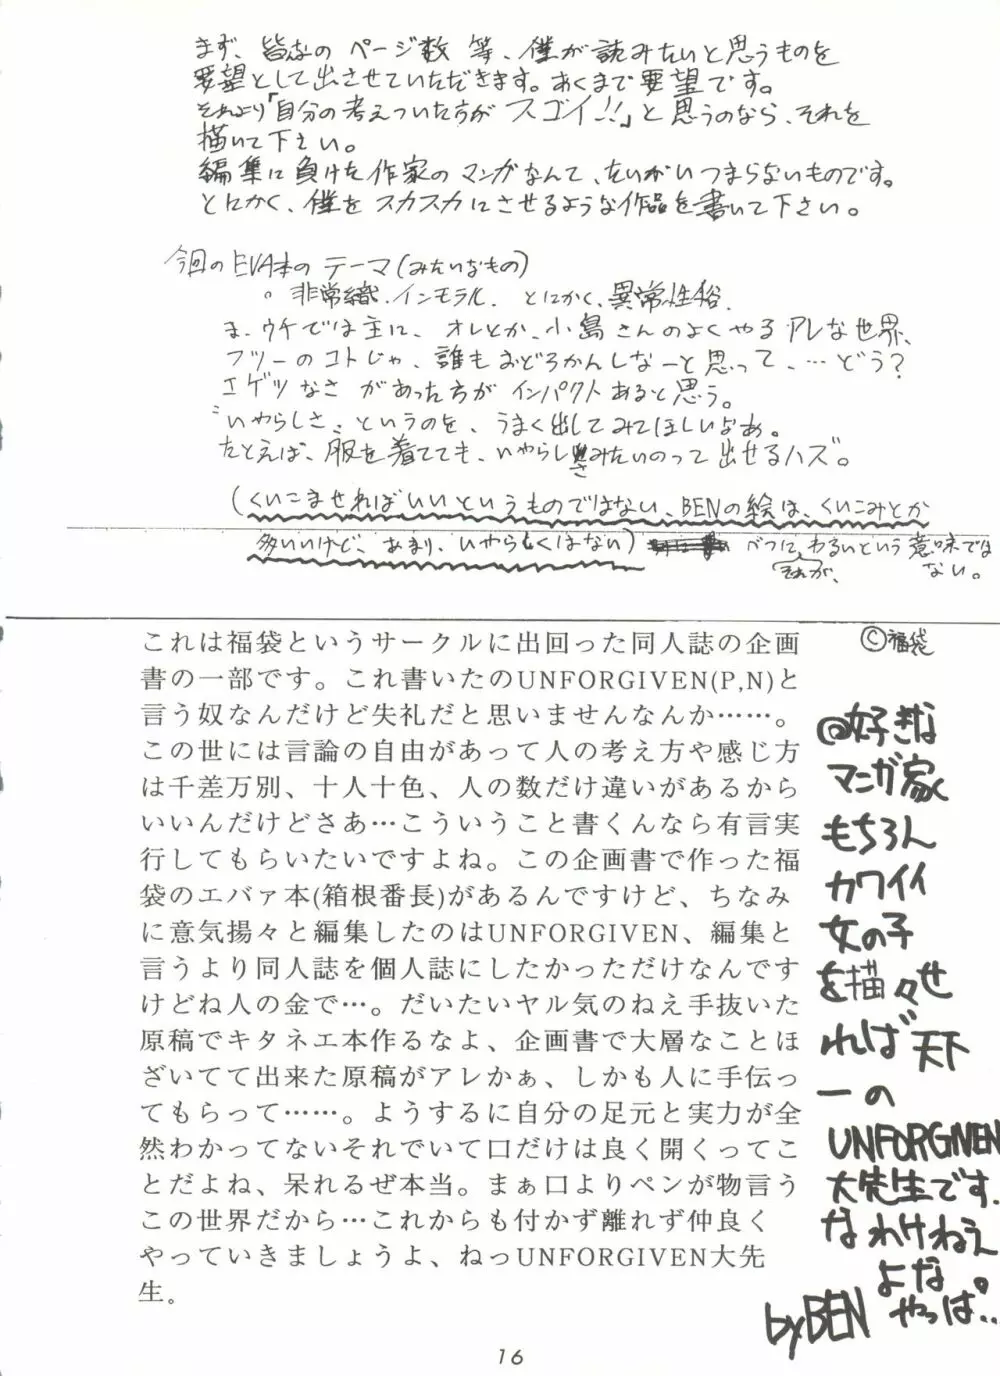 まず、皆なのページ数 等、僕が読みたいと思うものを
要望として出させていただきます。あくまで要望です。
それより「自分の考えついた方が スゴイ!!」と思うのなら、それを
描いて下さい。
編集に負けた作家のマンガなんて、たいがいつまらないものです。
とにかく、僕をスカスカにさせるような作品を書いて下さい。
今回のEVA本のテーマ(みたいなもの)
。非常織.インモラル. とにかく、異常性俗.
ま、ウチでは主に、オレとか、小島さんのよくやるアレな世界、
フツーのコトじゃ、誰もおどろかんしなーと思って、…どう?
エゲツなさがあった方がインパクトあると思う。
"いやらしさ"というのを、うまく出してみてほしいなあ。
たとえば、服を着てても、いやらしさみたいのって出せるハズ。
(くいこませればいいというものではない、BENの絵は、くいこみとか
多いけど、あまり、いやらしくはない) べつに、それが、わるいという意味では
ない。
これは福袋というサークルに出回った同人誌の企画
書の一部です。これ書いたのUNFORGIVEN(P,N)と
言う奴なんだけど失礼だと思いませんなんか……。
この世には言論の自由があって人の考え方や感じ方
は千差万別、十人十色、人の数だけ違いがあるから
いいんだけどさあ…こういうこと書くんなら有言実
行してもらいたいですよね。この企画書で作った福
袋のエバァ本(箱根番長)があるんですけど、ちなみ
に意気揚々と編集したのはUNFORGIVEN、編集と
言うより同人誌を個人誌にしたかっただけなんです
けどね人の金で…。だいたいヤル気のねえ手抜いた
原稿でキタネエ本作るなよ、企画書で大層なことほ
ざいてて出来た原稿がアレかぁ、しかも人に手伝っ
てもらって……。ようするに自分の足元と実力が全
然わかってないそれでいて口だけは良く開くってこ
とだよね、呆れるぜ本当。まぁ口よりペンが物言う
この世界だから…これからも付かず離れず仲良く
やっていきましょうよ、ねっUNFORGIVEN大先
生。
©福袋
@好きな
マンガ家
もちろん
カワイイ
女の子
を描々せ
れば天下
一の
UNFORGIVEN
大先生です.
なわけねえ
よな。
やっぱ..
by BEN
16